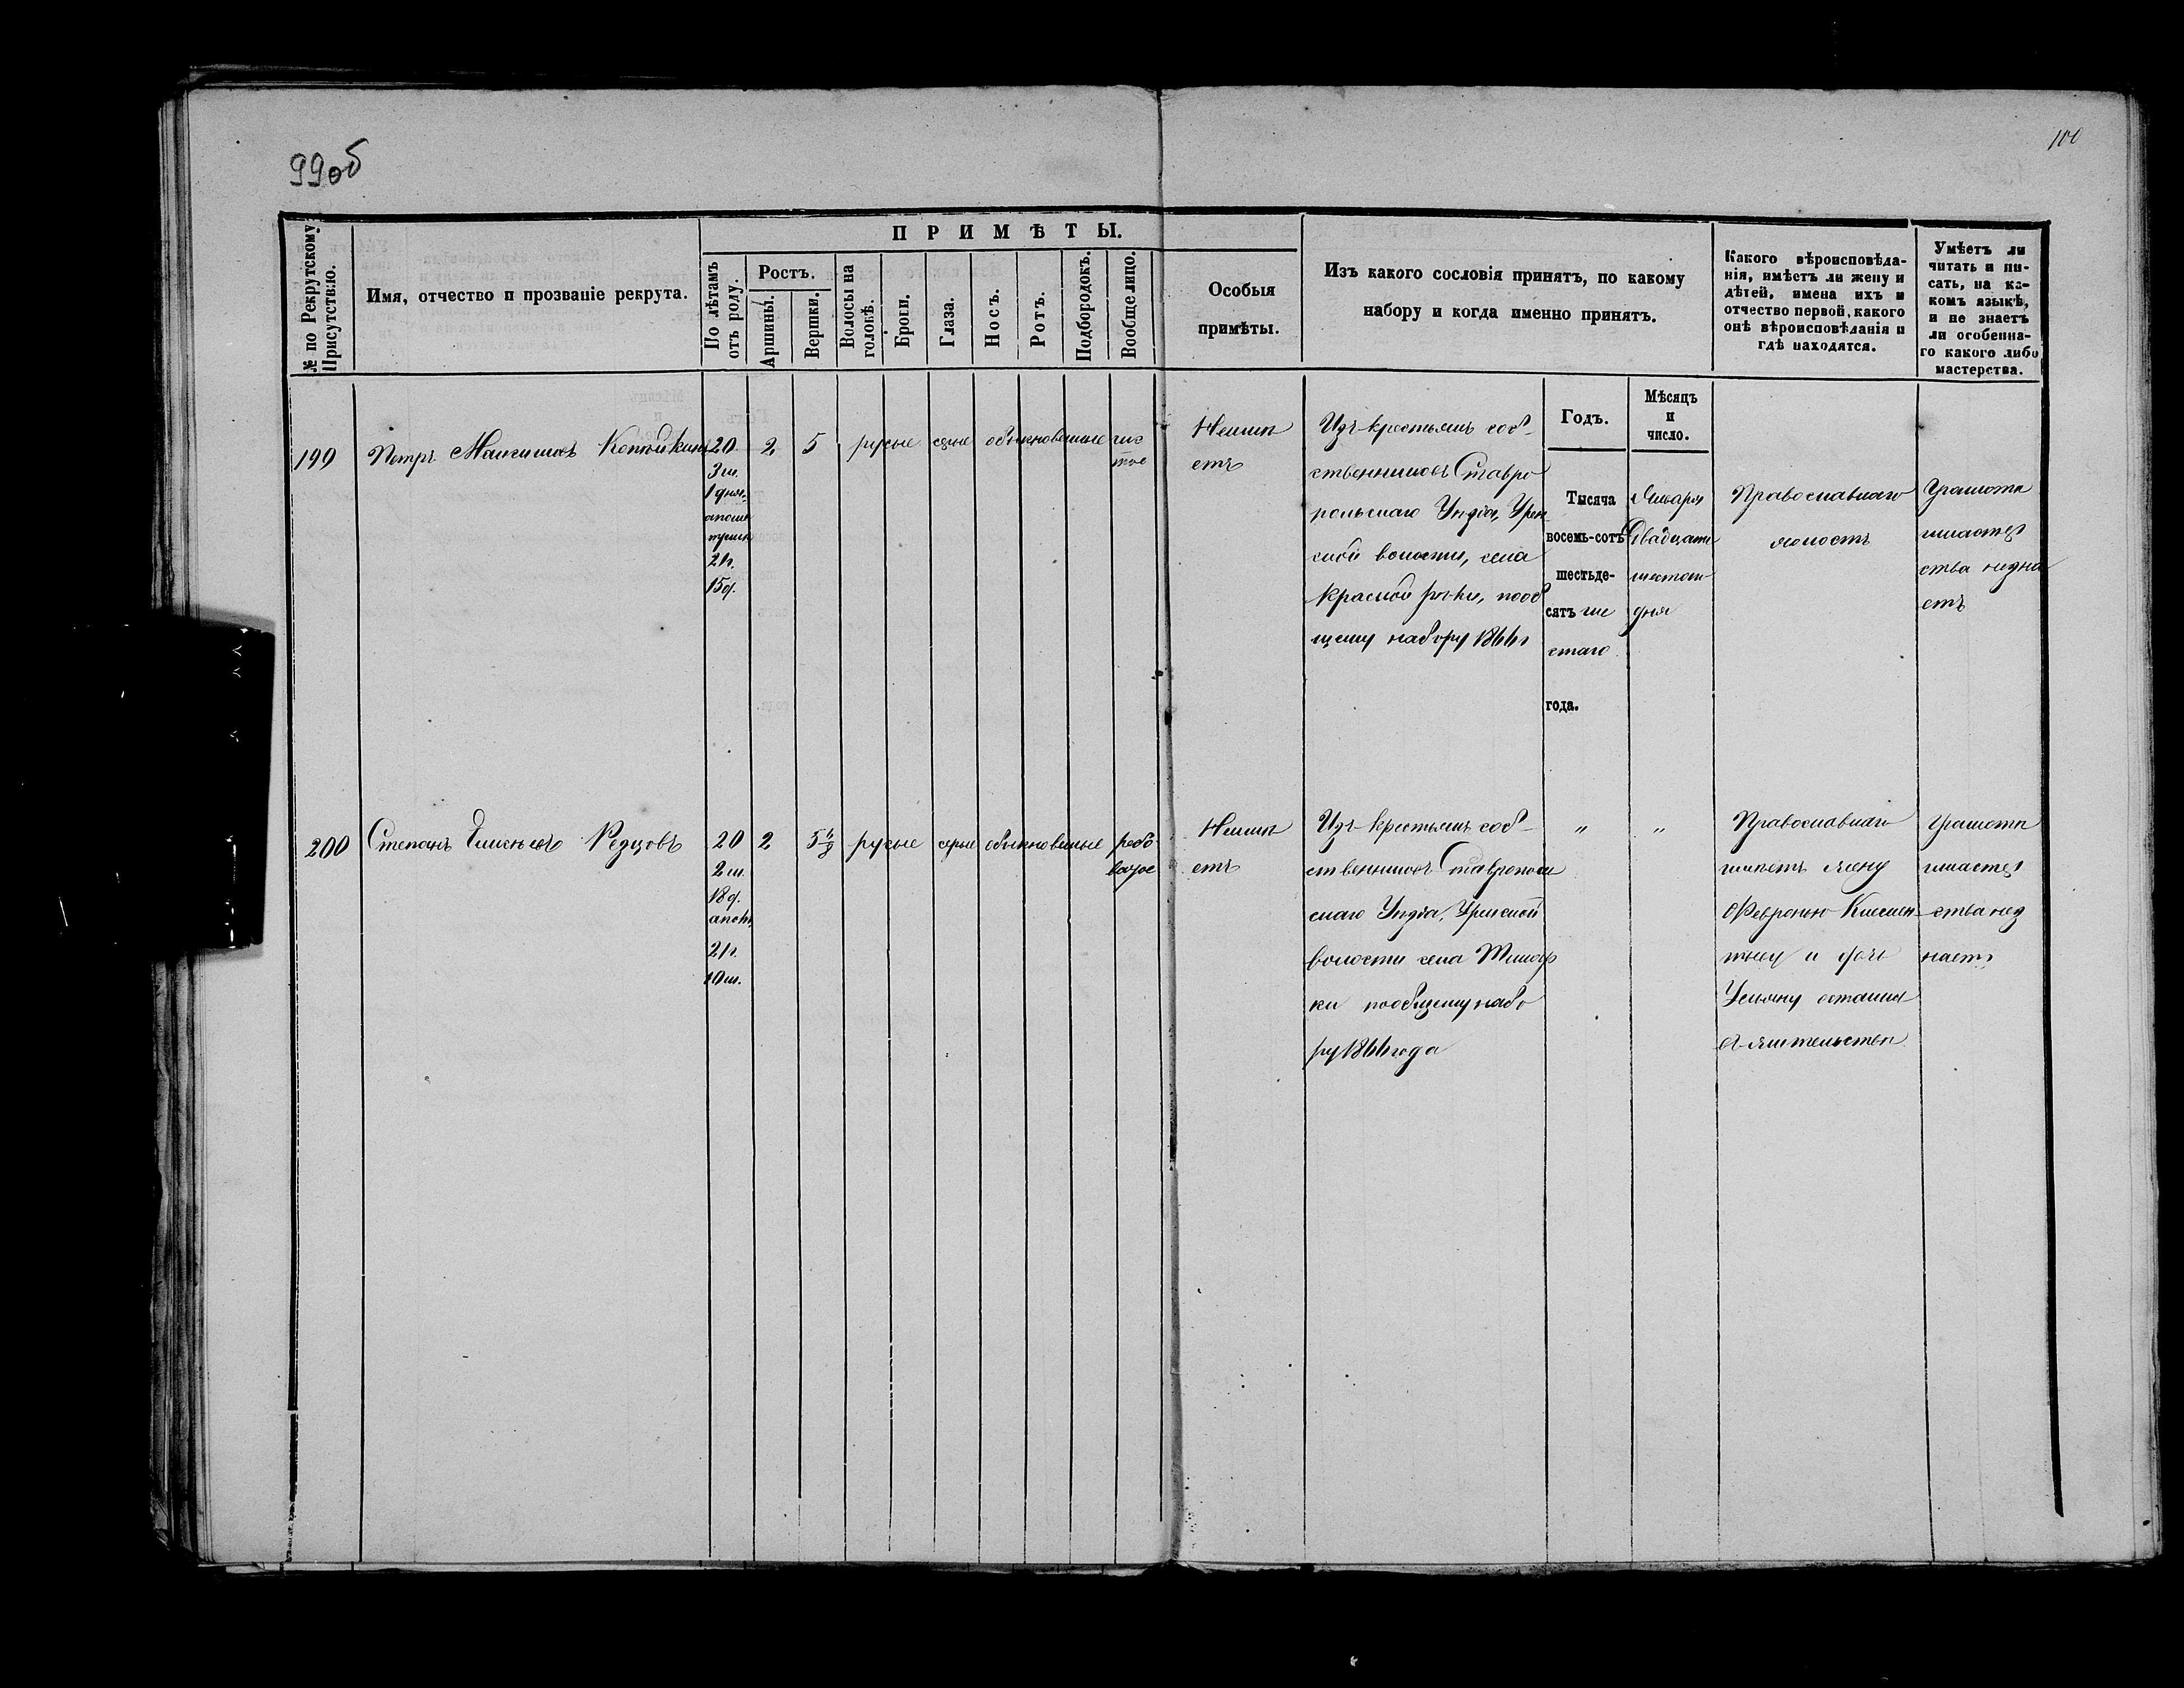 99об
100
№ по Рекрутскому Присутствію.
Имя, отчество и прозваніе рекрута.
ПРИМѢТЫ.
По лѣтамъ отъ роду.
Ростъ.
Аршины.
Вершки.
Волосы на головѣ.
Брови.
Глаза.
Носъ.
Ротъ.
Подбородокъ.
Вообще лицо.
Особыя
примѣты.
Изъ какого сословія принятъ, по какому
набору и когда именно принятъ.
Какого вѣроисповѣда-
нія, имѣетъ ли жену и
дѣтей, имена ихъ и
отчество первой, какого
онѣ вѣроисповѣданія и
гдѣ находятся.
Умѣетъ ли
читать и пи-
сать, на ка-
комъ языкѣ,
и не знаетъ
ли особенна-
го какого либо
мастерства.
Годъ.
Мѣсяцъ
и
число.
199
Петръ Максимовъ
20
3 м.
1 дня
2 г.
15 д.
2
5
русые
серые
обыкновенные
чис
тое
Неимѣ
етъ
Изъ крестьянъ соб-
ственниковъ Ставро
польскаго Уѣзда,
ской волости, села
Красной рѣки, пооб
щему набору 1866 г
Тысяча
восемь-сотъ
шестьде-
сятъ ше
стаго
года.
Января
Двадцать
шестаго
дня
Православнаго
холостъ
Грамотѣ
имастер
ства незна
етъ
200
Степанъ Елисѣевъ
20
2 м.
18 д.
2 г.
10 м.
2
5 4/8
русые
серые
обыкновенные
рябо
ватое
Неимѣ
етъ
Изъ крестьянъ соб-
ственниковъ Ставрополь
скаго Уѣзда,
волости села
ки пообщему набо
ру 1866 года
"
"
Православнаго
имѣетъ жену
Февронью Климен
тьеву и дочь
Ульяну
жительствѣ
Грамотѣ
имастер
ства нез
наетъ